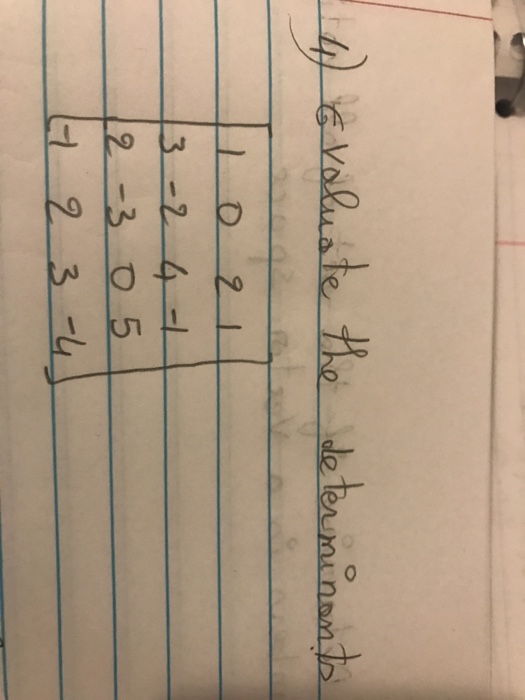 4) Evaluate the determinants
1 0 2 1
3 -2 4 -1
2 -3 0 5
-1 2 3 -4